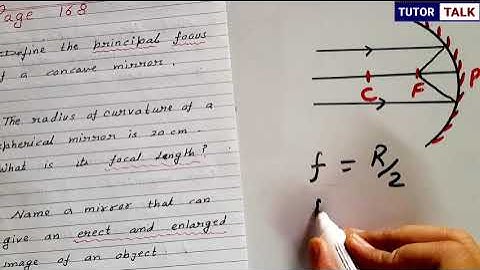 Page 168
Define the principal focus
of a concave mirror.
The radius of curvature of a
spherical mirror is 20 cm.
What is its focal length?
Name a mirror that can
give an erect and enlarged
image of an object.
TUTOR TALK
C F P
f = R/2
f